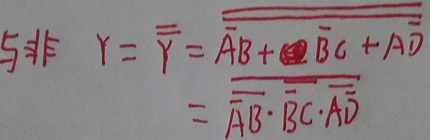 与非 Y = \overline{\overline{Y}} = \overline{\overline{\overline{A}B + \overline{B}C + A\overline{D}}}
= \overline{\overline{\overline{A}B} \cdot \overline{\overline{B}C} \cdot \overline{A\overline{D}}}